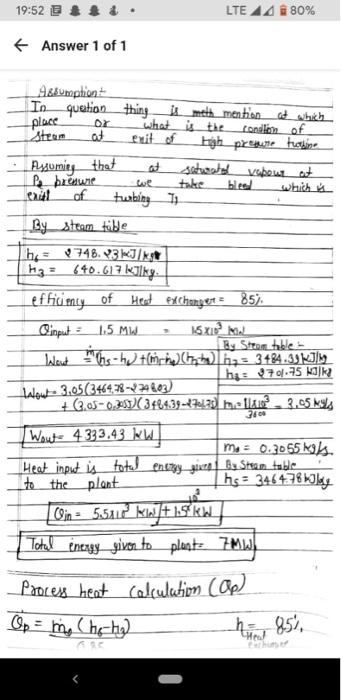 19:52 LTE 80%
← Answer 1 of 1
Assumption:-
In question thing is mention at which
place or what is the condition of
steam at exit of high pressure turbine
• Assuming that at saturated vapour at
P2 pressure we take bleed which is
exit of turbing T1
By steam table
h6 = 2748.23 kJ/kg
h3 = 640.617 kJ/kg.
efficiency of Heat exchanger = 85%.
Qinput = 1.5 MW = 1.5×10³ kW
By Steam table:-
Wout = ṁ(h5-h6)+(ṁ-ṁ6)(h7-h8) h7 = 3484.39 kJ/kg
h8 = 2701.75 kJ/kg
Wout = 3.05(3464.78-2748.23)
+ (3.05-0.3055)(3484.39-2701.75) = 3.05 kg/s
3600
Wout = 4333.43 kW
= 0.3055 kg/s
Heat input is total energy given By Steam table
to the plant h5 = 3464.78 kJ/kg
Qin = 5.5×10³ kW + 1.5×10³ kW
Total energy given to plant = 7MW
Process heat calculation (Qp)
Qp = (h6-h3) η = 85%,
0.85 Heat
Exchanger